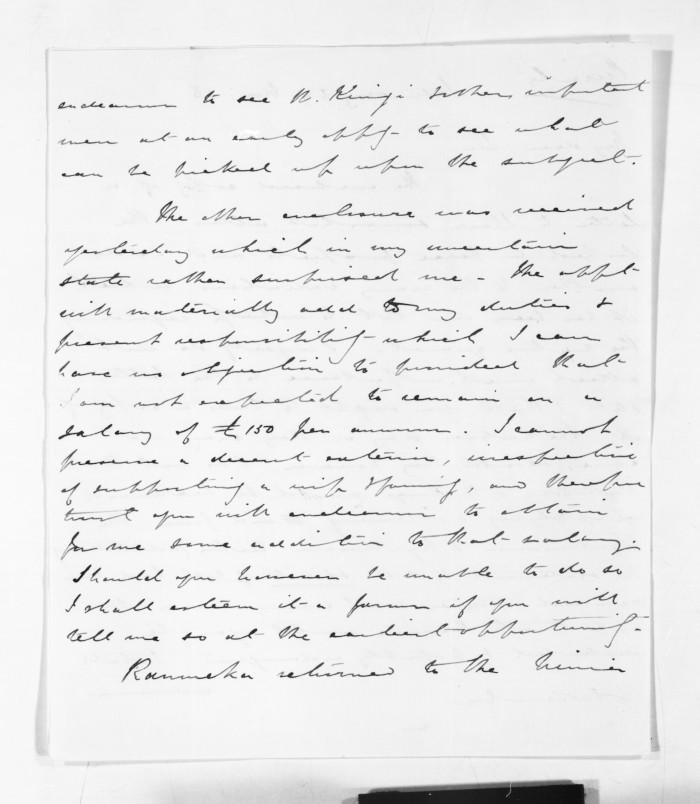 endeavour to see W. Kingi & other important
men at an early oppy - to see what
can be picked up upon the subject.
The other enclosure was received
yesterday which in my uncertain
state rather surprised me - The appt
will materially add to my duties &
present responsibility - which I can
have no objection to provided that
I am not expected to remain on a
salary of £150 per annum. I cannot
preserve a decent exterior, irrespective
of supporting a wife & family, and therefore
trust you will endeavour to obtain
for me some addition to that salary.
Should you however be unable to do so
I shall esteem it a favour if you will
tell me so at the earliest opportunity -
returned to the